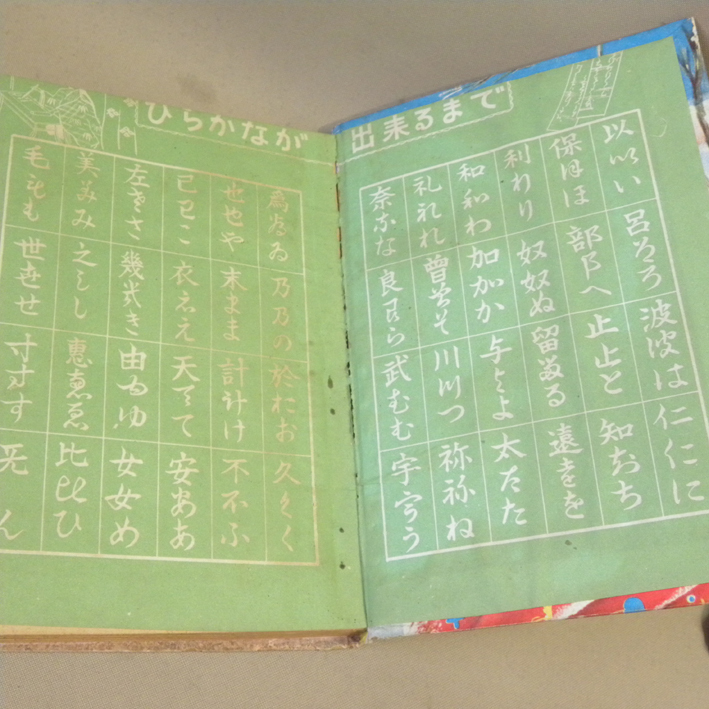 ひらかなが出来るまで
以以い 呂ろろ 波波は 仁仁に
保保ほ 部へ 止止と 知ちち
利りり 奴奴ぬ 留るる 遠をを
和和わ 加加か 与よよ 太たた
礼礼れ 曽そそ 川川つ 祢祢ね
奈なな 良らら 武むむ 宇うう
爲ゐゐ 乃乃の 於おお 久くく
也也や 末まま 計けけ 不不ふ
己己こ 衣ええ 天てて 安ああ
左ささ 幾きき 由ゆゆ 女女め
美みみ 之しし 恵恵ゑ 比ひひ
毛もも 世せせ 寸すす 旡ん